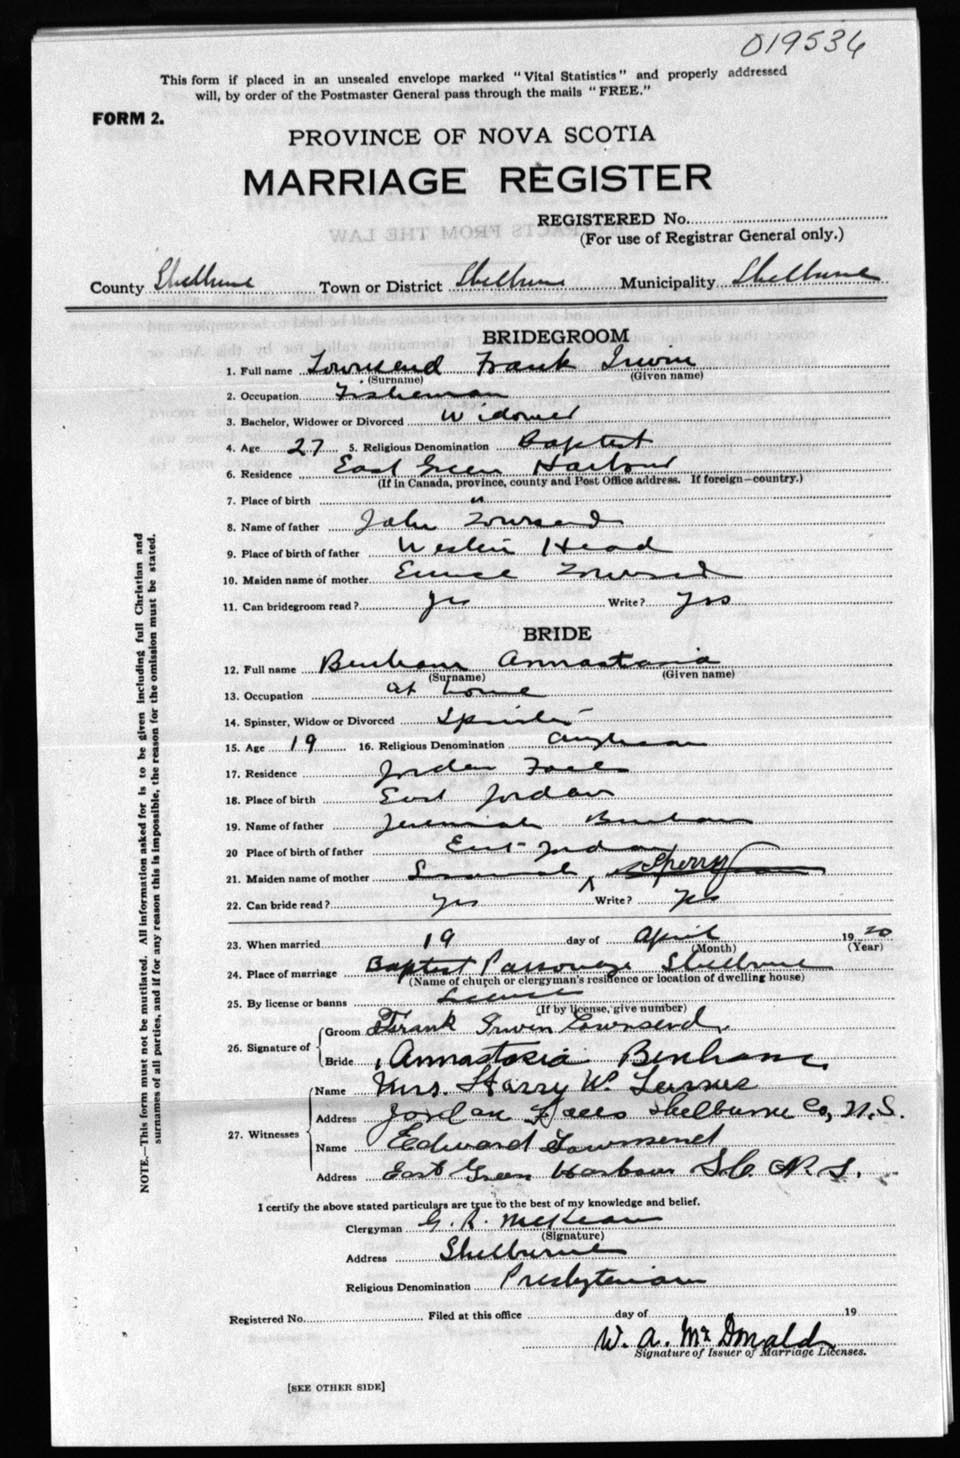 019536
This form if placed in an unsealed envelope marked "Vital Statistics" and properly addressed
will, by order of the Postmaster General pass through the mails "FREE."
FORM 2.
PROVINCE OF NOVA SCOTIA
MARRIAGE REGISTER
REGISTERED No.
(For use of Registrar General only.)
County Shelburne Town or District Shelburne Municipality Shelburne
BRIDEGROOM
1. Full name Townsend Frank Irwin
(Surname) (Given name)
2. Occupation Fisherman
3. Bachelor, Widower or Divorced Widower
4. Age 27 5. Religious Denomination Baptist
6. Residence East Green Harbour
(If in Canada, province, county and Post Office address. If foreign—country.)
7. Place of birth "
8. Name of father John Townsend
9. Place of birth of father Western Head
10. Maiden name of mother Eunice Townsend
11. Can bridegroom read? yes Write? yes
BRIDE
12. Full name Benham Annastasia
(Surname) (Given name)
13. Occupation at home
14. Spinster, Widow or Divorced Spinster
15. Age 19 16. Religious Denomination Anglican
17. Residence Jordan Falls
18. Place of birth East Jordan
19. Name of father Jeremiah Benham
20 Place of birth of father East Jordan
21. Maiden name of mother Sperry
22. Can bride read? yes Write? yes
23. When married 19 day of April 1920
(Month) (Year)
24. Place of marriage Baptist Parsonage Shelburne
(Name of church or clergyman's residence or location of dwelling house)
25. By license or banns License
(If by license, give number)
26. Signature of Groom Frank Irwin Townsend.
Bride Annastasia Benham.
27. Witnesses Name Mrs. Harry W.
Address Jordan Falls Shelburne Co, N.S.
Name Edward Townsend
Address East Green Harbour S.C. N.S.
I certify the above stated particulars are true to the best of my knowledge and belief.
Clergyman G. R. McKean
(Signature)
Address Shelburne
Religious Denomination Presbyterian
Registered No. Filed at this office day of 19
W. A. McDonald
Signature of Issuer of Marriage Licenses.
[SEE OTHER SIDE]
NOTE.—This form must not be mutilated. All information asked for is to be given including full Christian and
surnames of all parties, and if for any reason this is impossible, the reason for the omission must be stated.